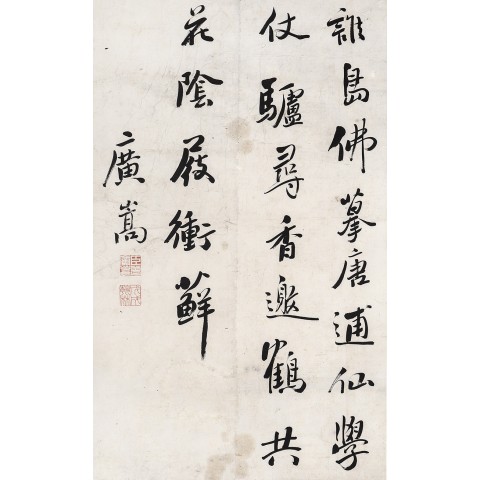 誰島佛摹唐逋仙學
仗驢尋香邀鶴共
花陰屐衝蘚
廣嵩